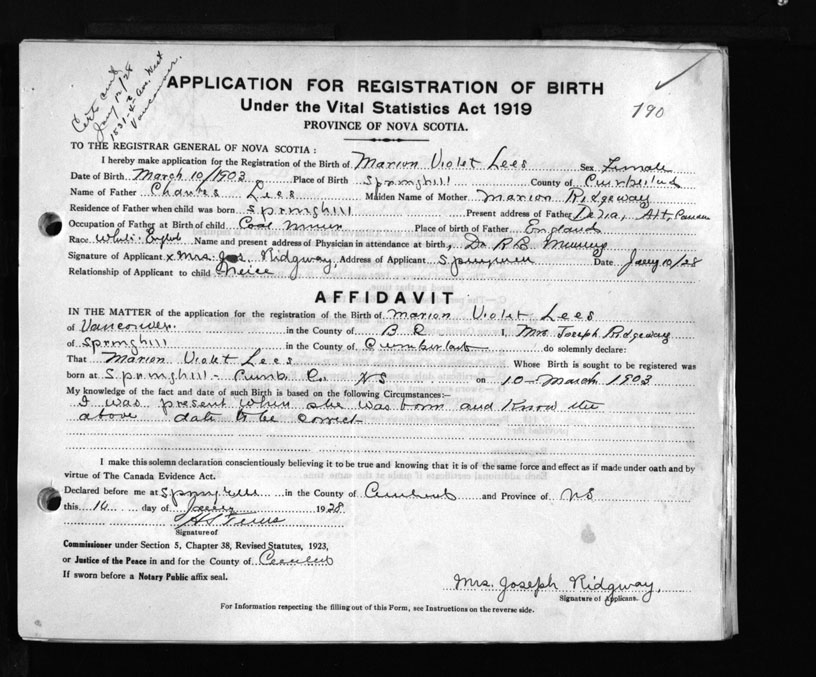 Cert and
Jany 12/28
1531-4th Ave. West
Vancouver.
190
APPLICATION FOR REGISTRATION OF BIRTH
Under the Vital Statistics Act 1919
PROVINCE OF NOVA SCOTIA.
TO THE REGISTRAR GENERAL OF NOVA SCOTIA:
I hereby make application for the Registration of the Birth of Marion Violet Lees Sex Female
Date of Birth March 10/1903 Place of Birth Springhill County of Cumberland
Name of Father Charles Lees Maiden Name of Mother Marion Ridgeway
Residence of Father when child was born Springhill Present address of Father Delia, Alt, Canada
Occupation of Father at Birth of child Coal miner Place of birth of Father England
Race White: English Name and present address of Physician in attendance at birth, Dr R B
Signature of Applicant x Mrs. Jos. Ridgway, Address of Applicant Springhill Date Jany 10/28
Relationship of Applicant to child Neice
AFFIDAVIT
IN THE MATTER of the application for the registration of the Birth of Marion Violet Lees
of Vancouver. in the County of B C I, Mrs Joseph Ridgeway
of Springhill in the County of Cumberland do solemnly declare:
That Marion Violet Lees Whose Birth is sought to be registered was
born at Springhill - Cumb Co. NS on 10 - March 1903
My knowledge of the fact and date of such Birth is based on the following Circumstances:—
I was present when she was born and know the
above date to be correct
I make this solemn declaration conscientiously believing it to be true and knowing that it is of the same force and effect as if made under oath and by
virtue of The Canada Evidence Act.
Declared before me at Springhill in the County of Cumberland and Province of NS
this 10 day of Jany 1928
Signature of
Commissioner under Section 5, Chapter 38, Revised Statutes, 1923,
or Justice of the Peace in and for the County of Cumberland
If sworn before a Notary Public affix seal.
Mrs. Joseph Ridgway,
Signature of Applicans.
For Information respecting the filling out of this Form, see Instructions on the reverse side.